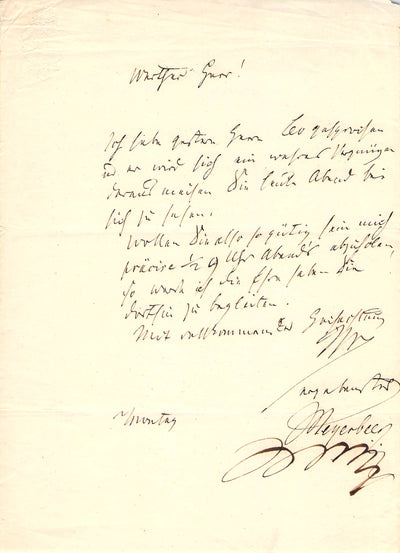 Werther Herr!
Ich habe gestern Herrn Leo gesprochen
und er wird sich ein wahres Vergnügen
daraus machen Sie heute Abend bei
sich zu sehen.
Wollen Sie also so gütig sein mich
präcise ½ 9 Uhr Abends abzuholen,
so werde ich die Ehre haben Sie
dorthin zu begleiten.
Mit vollkommenster Hochachtung
Ihr
ergebenster
Meyerbeer
Montag